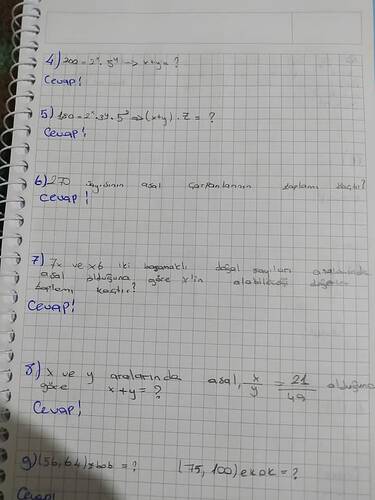 4) 200 = 2ˣ . 5ʸ → x+y = ?
Cevap!
5) 180 = 2ˣ . 3ʸ . 5ᶻ ⇒ (x+y) . Z = ?
Cevap!
6) 270 sayısının asal çarpanlarının toplamı kaçtır?
Cevap!
7) 7x ve x6 iki basamaklı doğal sayıları aralarında
asal olduğuna göre x'in alabileceği değerler
toplamı kaçtır?
Cevap!
8) x ve y aralarında asal, x/y = 21/49 olduğuna
göre x+y = ?
Cevap!
9) (56, 64) ebob = ? (75, 100) ekok = ?
Cevap!